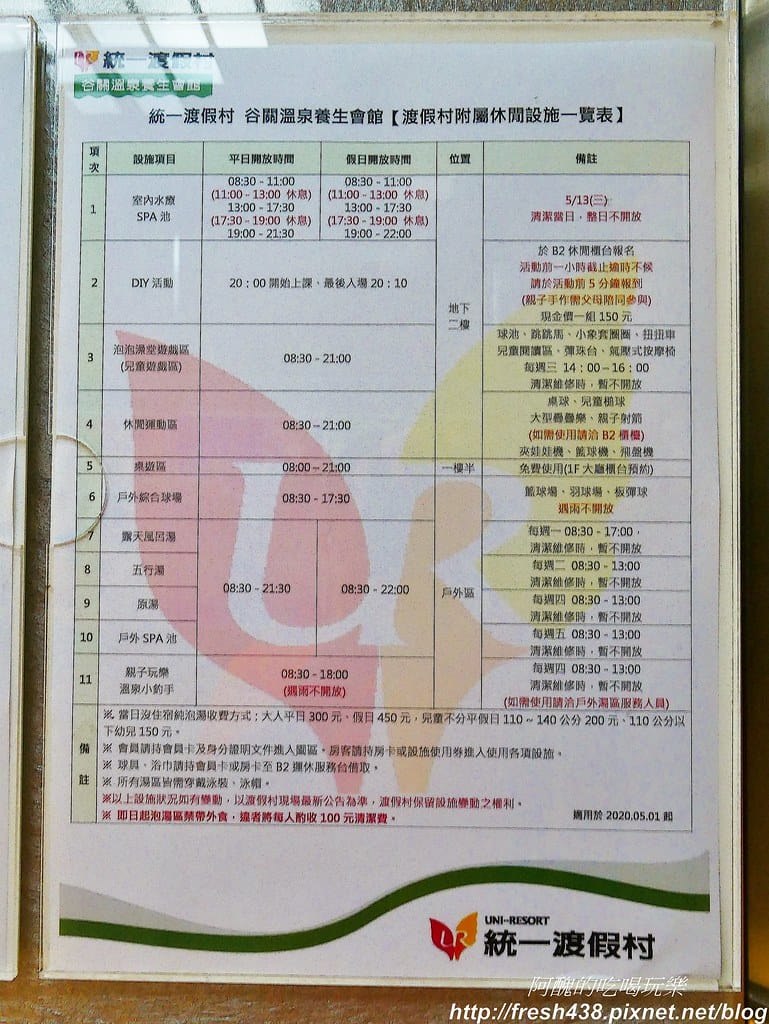 統一渡假村
谷關溫泉養生會館
統一渡假村 谷關溫泉養生會館【渡假村附屬休閒設施一覽表】
項次 設施項目 平日開放時間 假日開放時間 位置 備註
1 室內水療 SPA 池
08:30 - 11:00
(11:00 - 13:00 休息)
13:00 - 17:30
(17:30 - 19:00 休息)
19:00 - 21:30
08:30 - 11:00
(11:00 - 13:00 休息)
13:00 - 17:30
(17:30 - 19:00 休息)
19:00 - 22:00
地下二樓
5/13(三)
清潔當日，整日不開放
2 DIY 活動 20：00 開始上課、最後入場 20：10
於 B2 休閒櫃台報名
活動前一小時截止逾時不候
請於活動前 5 分鐘報到
(親子手作需父母陪同參與)
現金價一組 150 元
3 泡泡澡堂遊戲區
(兒童遊戲區)
08:30 - 21:00
球池、跳跳馬、小象套圈圈、扭扭車
兒童閱讀區、彈珠台、氣壓式按摩椅
每週三 14：00－16：00
清潔維修時，暫不開放
4 休閒運動區 08:30 - 21:00
桌球、兒童槌球
大型疊疊樂、親子射箭
(如需使用請洽 B2 櫃檯)
夾娃娃機、籃球機、飛盤機
5 桌遊區 08:00 - 21:00 一樓半 免費使用(1F 大廳櫃台預約)
6 戶外綜合球場 08:30 - 17:30
戶外區
籃球場、羽球場、板彈球
遇雨不開放
7 露天風呂湯
08:30 - 21:30 08:30 - 22:00
每週一 08:30 - 17:00，
清潔維修時，暫不開放
8 五行湯
每週二 08:30 - 13:00
清潔維修時，暫不開放
9 原湯
每週四 08:30 - 13:00
清潔維修時，暫不開放
10 戶外 SPA 池
每週五 08:30 - 13:00
清潔維修時，暫不開放
11 親子玩樂
溫泉小釣手
08:30 - 18:00
(遇雨不開放)
每週四 08:30 - 13:00
清潔維修時，暫不開放
(如需使用請洽戶外湯區服務人員)
備註
※ 當日沒住宿純泡湯收費方式；大人平日 300 元、假日 450 元，兒童不分平假日 110 ~ 140 公分 200 元、110 公分以
下幼兒 150 元。
※ 會員請持會員卡及身分證明文件進入園區。房客請持房卡或設施使用券進入使用各項設施。
※ 球具、浴巾請持會員卡或房卡至 B2 運休服務台借取。
※ 所有湯區皆需穿戴泳裝、泳帽。
※以上設施狀況如有變動，以渡假村現場最新公告為準，渡假村保留設施變動之權利。
※ 即日起泡湯區禁帶外食，違者將每人酌收 100 元清潔費。
適用於 2020.05.01 起
UR
UNI-RESORT
統一渡假村
阿醜的吃喝玩樂
http://fresh438.pixnet.net/blog